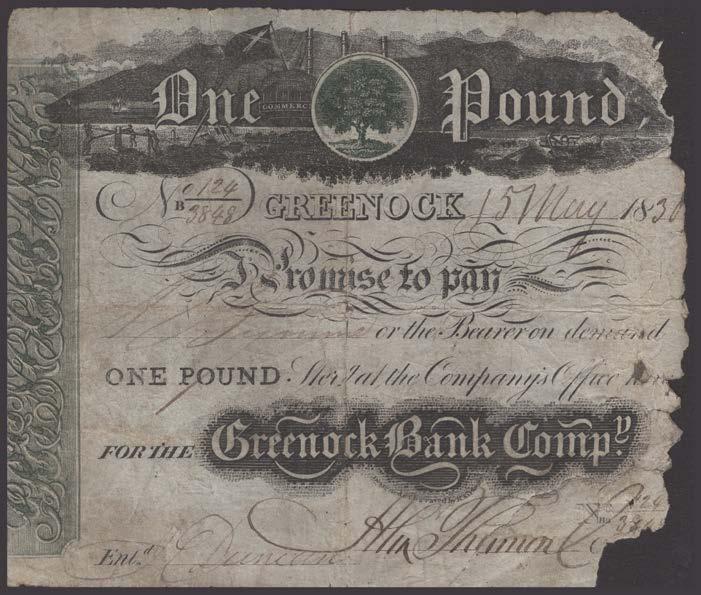 One Pound
COMMERC
No B 124/3848 GREENOCK 15 May 183
Promise to pay
or the Bearer on demand
ONE POUND Ster.g at the Company's Office
FOR THE Greenock Bank Comp.y
Ent.d Duncan